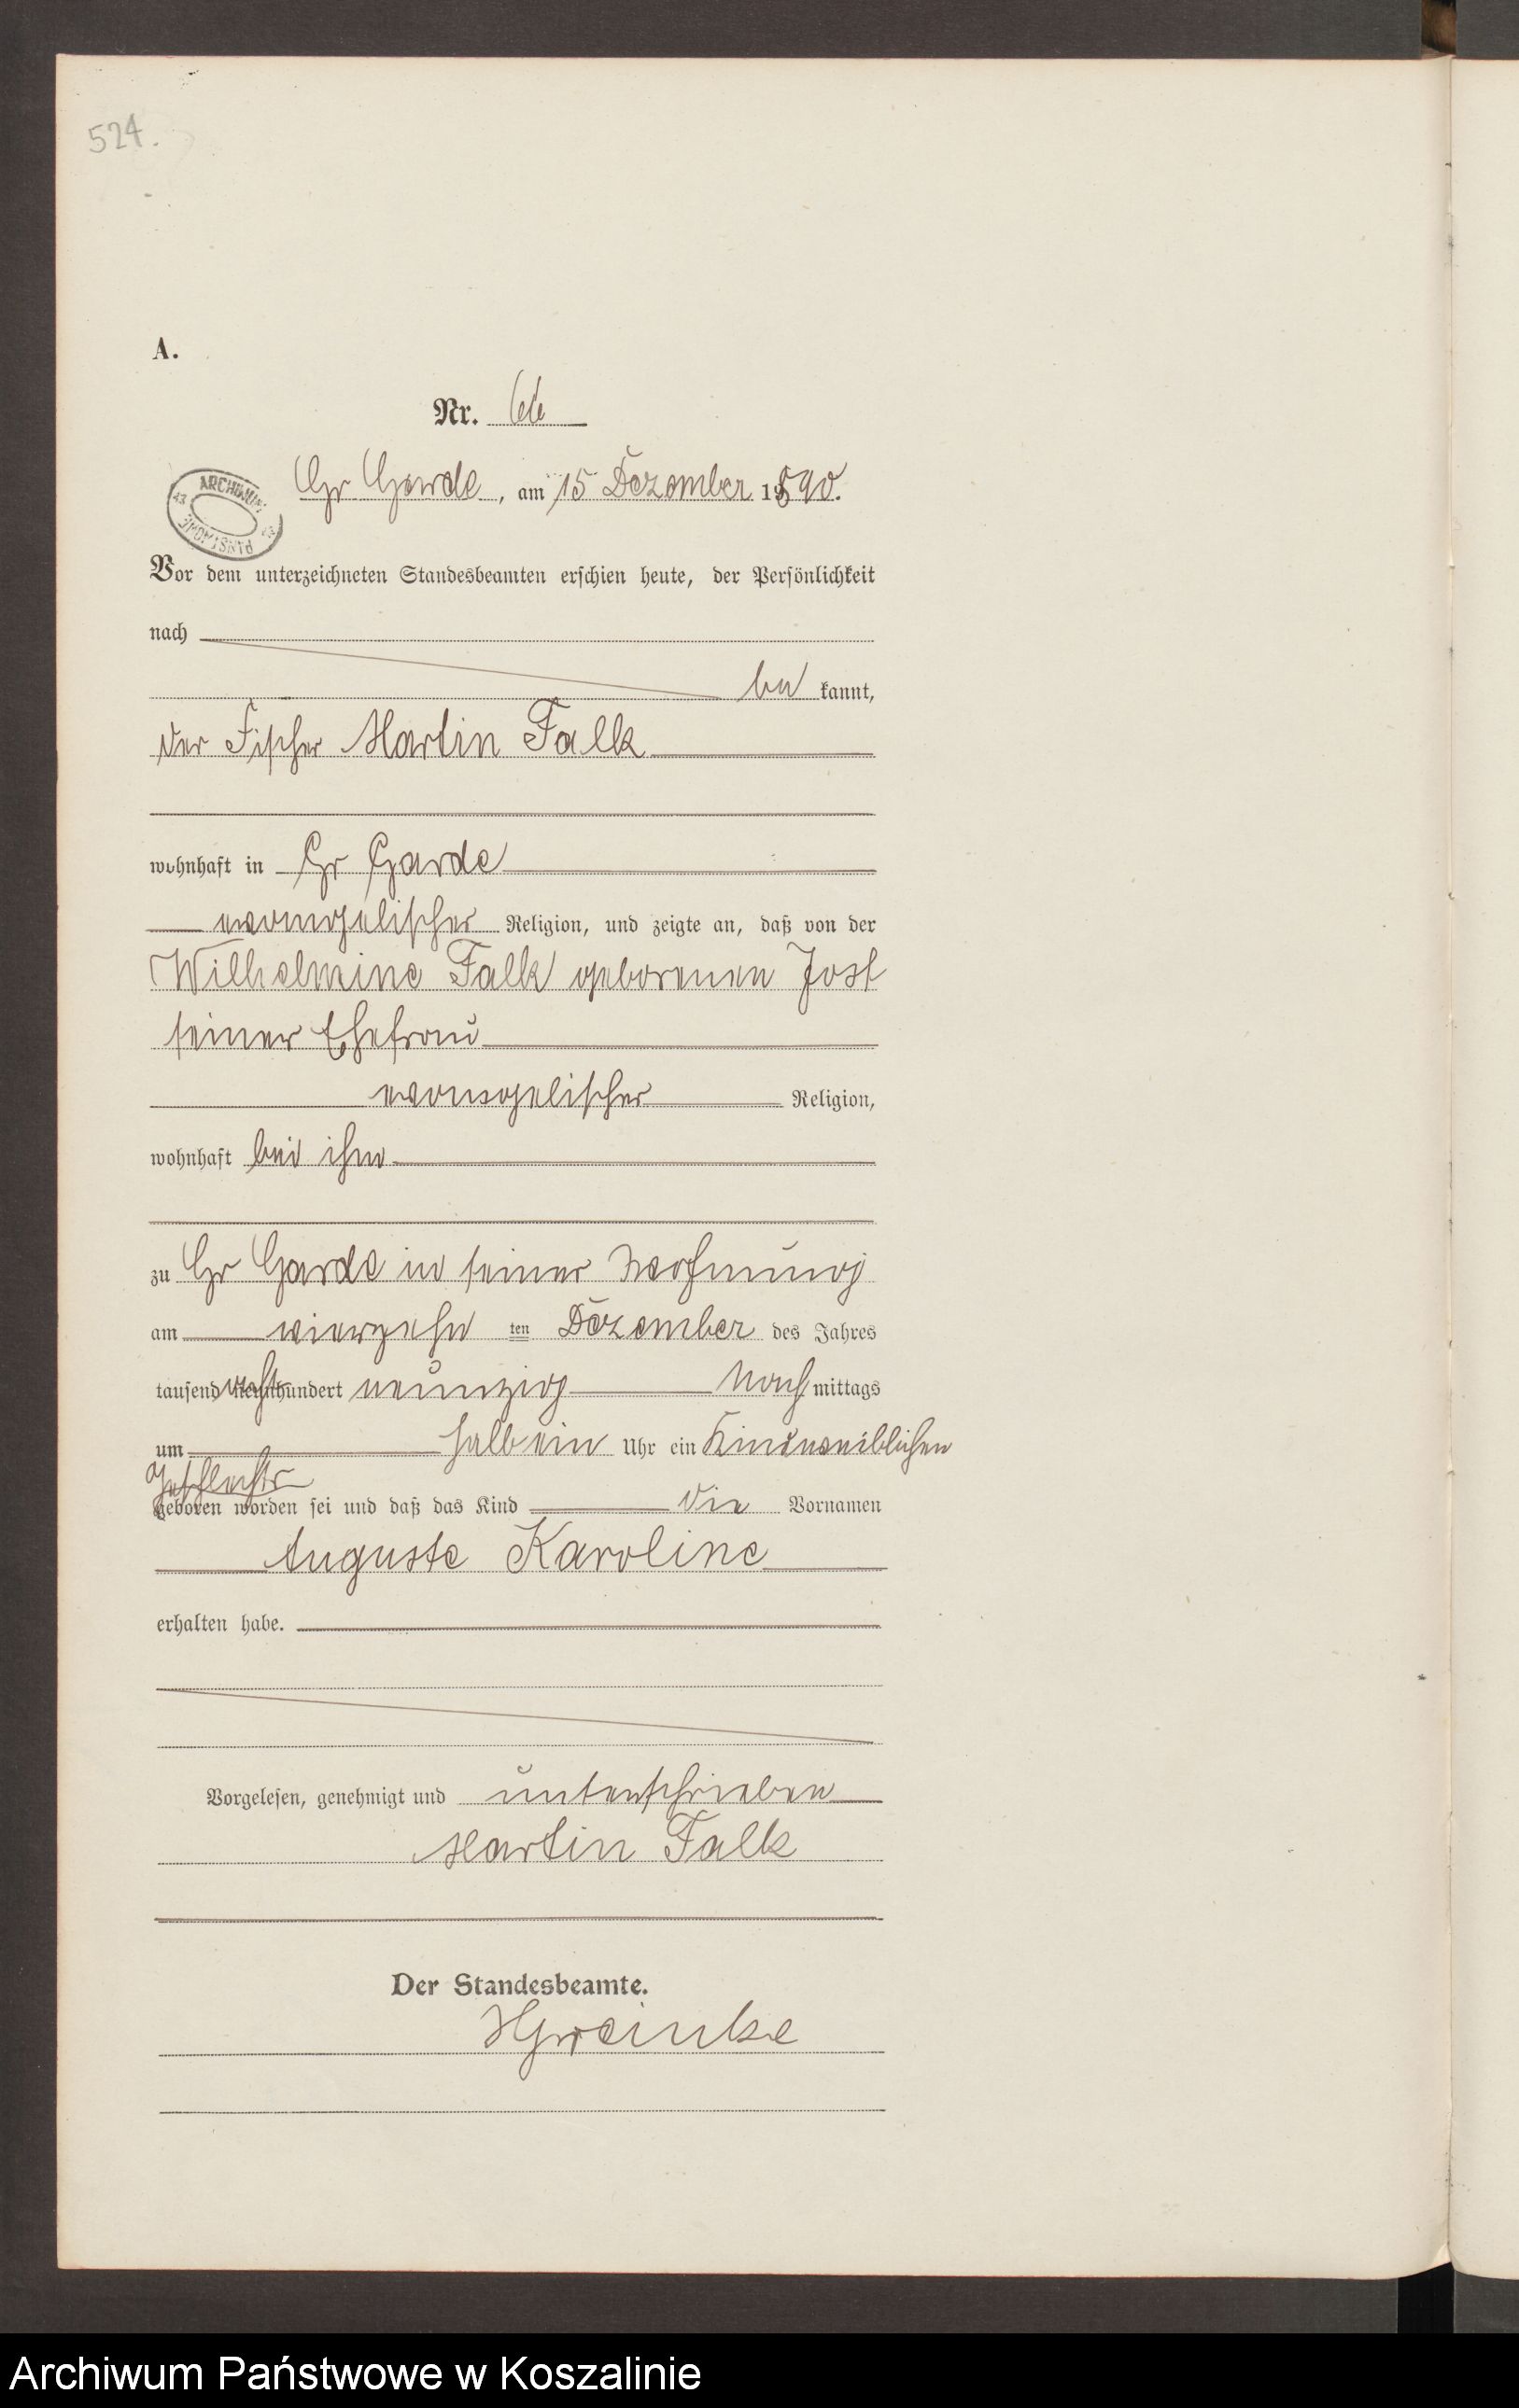 524.
A.
Nr. 66
ARCHIWUM PAŃSTWOWE
Gr Garde, am 15 Dezember 1890.
Vor dem unterzeichneten Standesbeamten erschien heute, der Persönlichkeit
nach
be kannt,
der Fischer Martin Falk
wohnhaft in Gr Garde
evangelischer Religion, und zeigte an, daß von der
Wilhelmine Falk geborenen Jost
seiner Ehefrau
evangelischer Religion,
wohnhaft bei ihm
zu Gr Garde in seiner Wohnung
am vierzehn ten Dezember des Jahres
tausend acht hundert neunzig Nach mittags
um halb ein Uhr ein Kind weiblichen
Geschlechts
geboren worden sei und daß das Kind die Vornamen
Auguste Karoline
erhalten habe.
Vorgelesen, genehmigt und unterschrieben
Martin Falk
Der Standesbeamte.
Archiwum Państwowe w Koszalinie